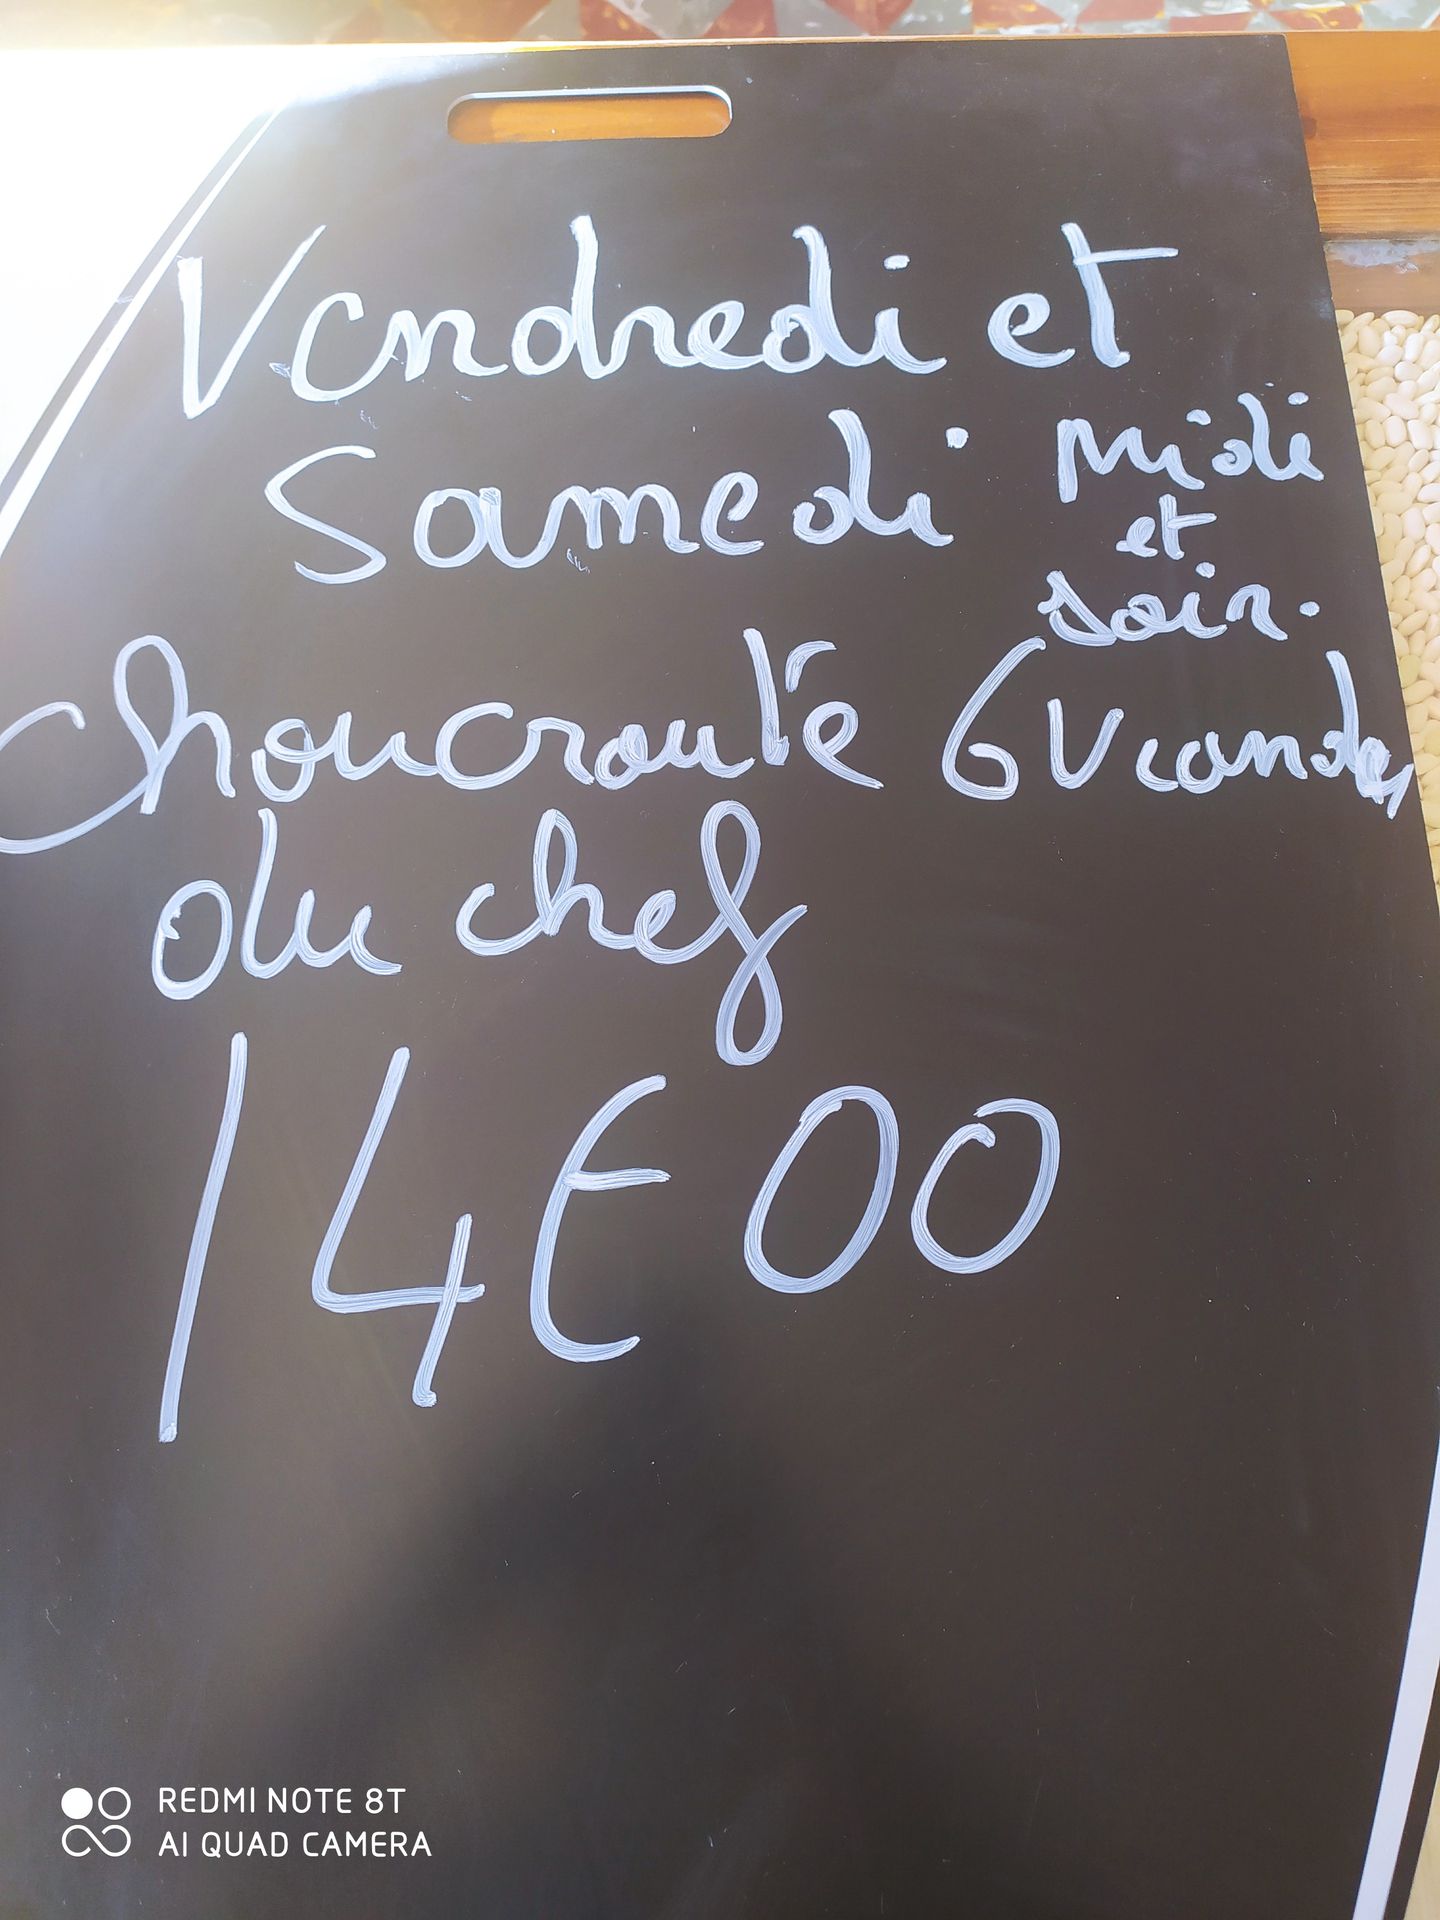 Vendredi et
Samedi Midi
et
soir.
Choucroute 6 viandes
du chef
14€00
REDMI NOTE 8T
AI QUAD CAMERA